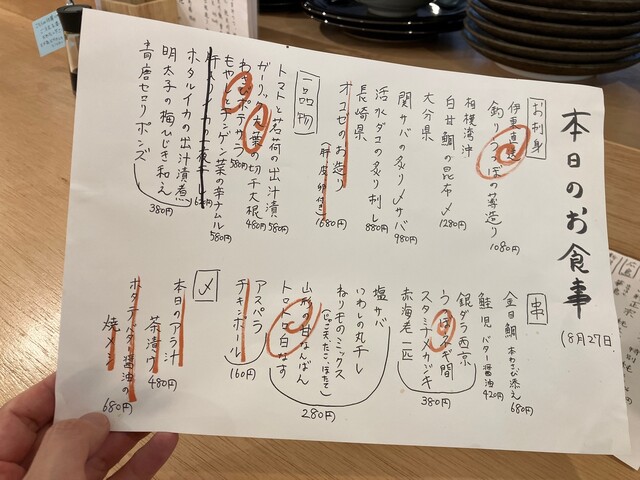 本日のお食事
(8月27日
お刺身
伊東直送
釣り
ぼの薄造り
1080円
相模湾沖
白甘鯛の昆布〆
1280円
大分県
関サバの炙り〆サバ
980円
活水ダコの炙り刺し
880円
長崎県
オコゼのお造り
(肝 皮 卵付き)
1680円
一品物
トマトと茗荷の出汁漬
580円
ガーリック大葉の切干大根
480円
わさびポテサラ
580円
もやしとチンゲン菜の辛ナムル
580円
ホタルイカの出汁漬煮
明太子の梅ひじき和え
青唐セロリポンズ
380円
串
金目鯛 本わさび添え
680円
鮭児 バター醤油
420円
銀ダラ西京
うす
スタミナ
380円
赤海老一匹
塩サバ
いわしの丸干し
ねりモのミックス
280円
山形の甘なんばん
トマト 白なす
アスパラ
チキンボール
160円
〆
本日のアラ汁
茶漬ケ
480円
ホタテバター醤油の
焼メシ
680円